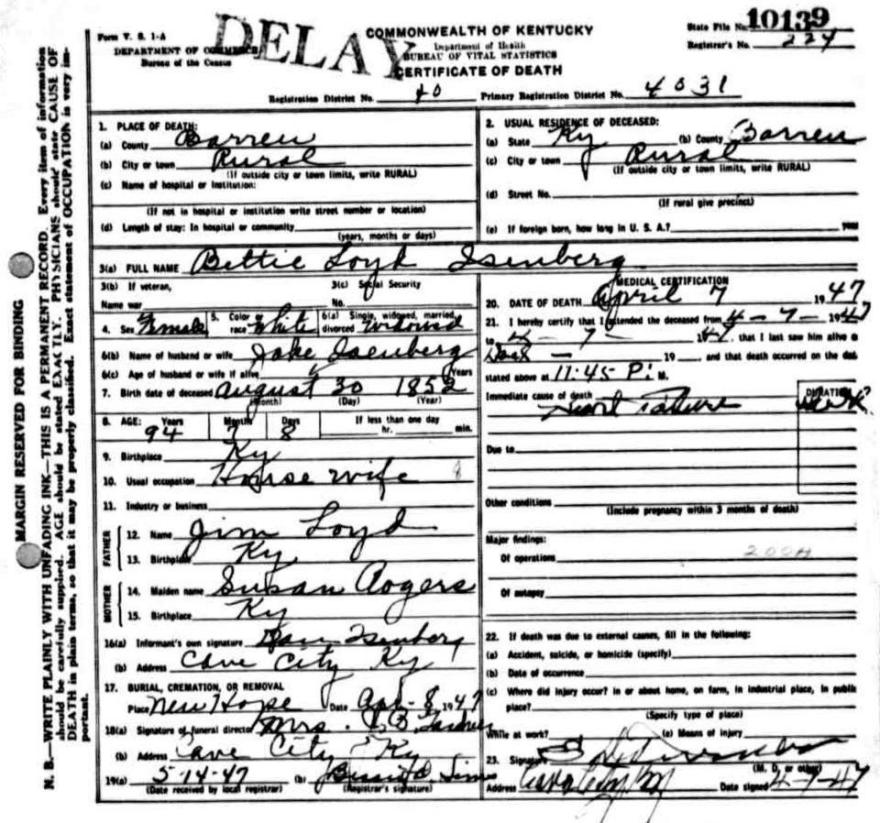 MARGIN RESERVED FOR BINDING
N. B.—WRITE PLAINLY WITH UNFADING INK—THIS IS A PERMANENT RECORD. Every item of information
should be carefully supplied. AGE should be stated EXACTLY. PHYSICIANS should state CAUSE OF
DEATH in plain terms, so that it may be properly classified. Exact statement of OCCUPATION is very im-
portant.
Form V. S. 1-A
DEPARTMENT OF COMMERCE
Bureau of the Census
DELAY
COMMONWEALTH OF KENTUCKY
Department of Health
BUREAU OF VITAL STATISTICS
CERTIFICATE OF DEATH
State File No. 10139
Registrar's No. 224
Registration District No. 40 Primary Registration District No. 4031
1. PLACE OF DEATH:
(a) County Barren
(b) City or town Rural
(If outside city or town limits, write RURAL)
(c) Name of hospital or institution:
(If not in hospital or institution write street number or location)
(d) Length of stay: In hospital or community
(years, months or days)
2. USUAL RESIDENCE OF DECEASED:
(a) State Ky (b) County Barren
(c) City or town Rural
(If outside city or town limits, write RURAL)
(d) Street No.
(If rural give precinct)
(e) If foreign born, how long in U. S. A.? year
3(a) FULL NAME Bettie Loyd Isenberg
3(b) If veteran,
Name war
3(c) Social Security
No.
4. Sex Female 5. Color or race White 6(a) Single, widowed, married, divorced Widowed
6(b) Name of husband or wife Jake Isenberg
6(c) Age of husband or wife if alive Years
7. Birth date of deceased August 30 1852
(Month) (Day) (Year)
8. AGE: Years Months Days If less than one day
94 7 8 hr. min.
9. Birthplace Ky
10. Usual occupation House wife
11. Industry or business
FATHER
12. Name Jim Loyd
13. Birthplace Ky
MOTHER
14. Maiden name Susan Rogers
15. Birthplace Ky
16(a) Informant's own signature Isenberg
(b) Address Cave City Ky
17. BURIAL, CREMATION, OR REMOVAL
Place New Hope Date Apr- 8, 1947
18(a) Signature of funeral director Mrs.
(b) Address Cave City Ky
19(a) 5-14-47 (b)
(Date received by local registrar) (Registrar's signature)
MEDICAL CERTIFICATION
20. DATE OF DEATH April 7 1947
21. I hereby certify that I attended the deceased from 4-7-1947
to 4-7- 1947, that I last saw him alive o
19 and that death occurred on the dat
stated above at 11:45 P. M.
Immediate cause of death DURATION
Heart Failure
Due to
Other conditions
(Include pregnancy within 3 months of death)
Major findings:
Of operations 200H
Of autopsy
22. If death was due to external causes, fill in the following:
(a) Accident, suicide, or homicide (specify)
(b) Date of occurrence
(c) Where did injury occur? in or about home, on farm, in industrial place, in public
place?
(Specify type of place)
While at work? (e) Means of injury
23. Signature
(M. D. or other)
Address Cave City Ky Date signed 4-7-47